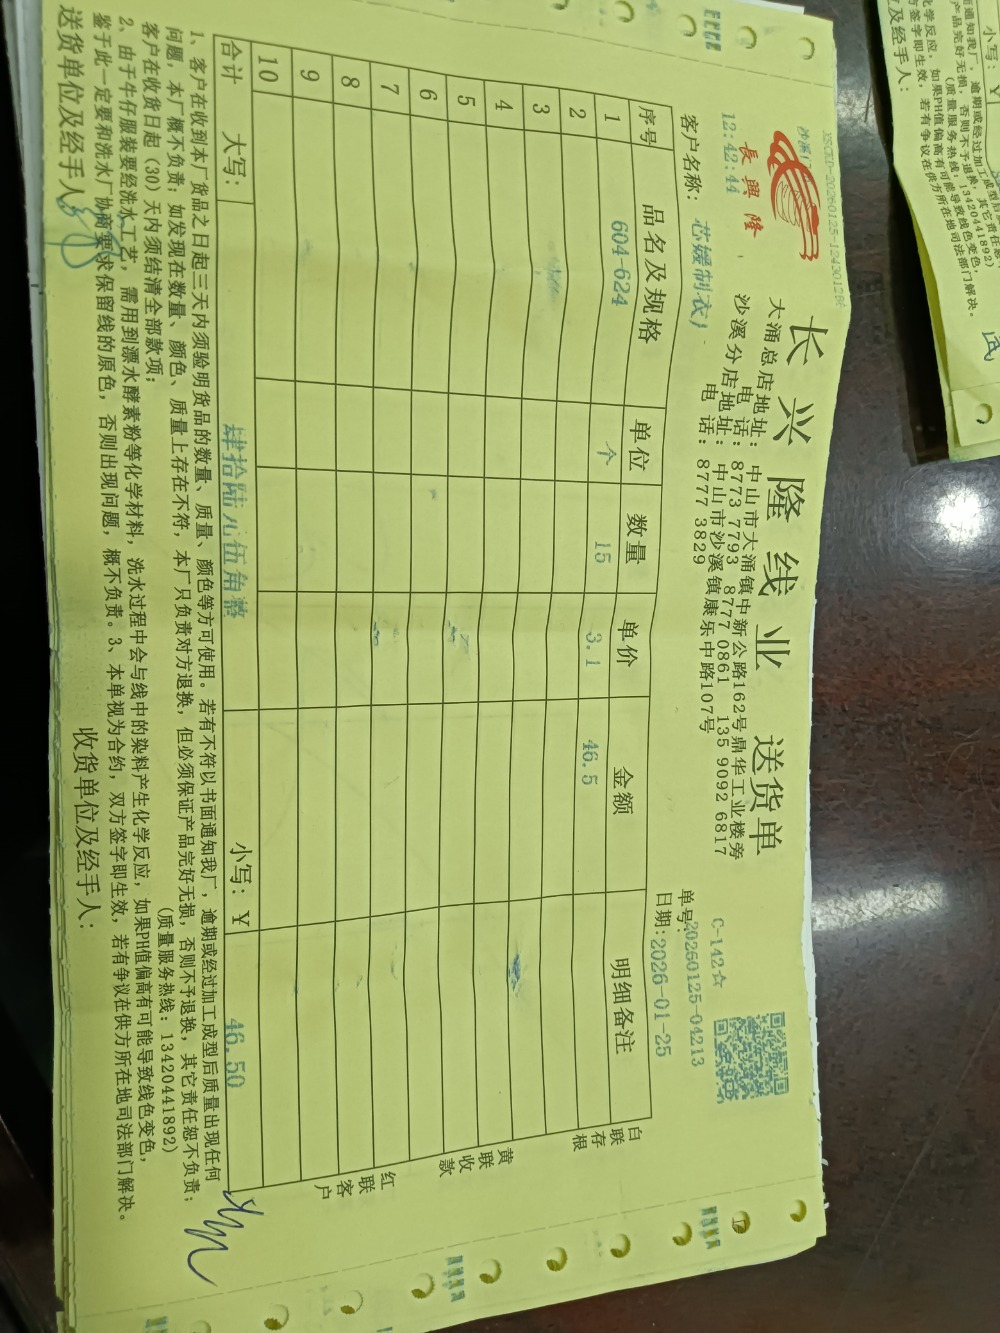 长兴隆线业 送货单
長興隆
大涌总店地址: 中山市大涌镇中新公路162号鼎华工业楼旁
电 话: 8773 7793 8777 0861 135 9092 6817
沙溪分店地址: 中山市沙溪镇康乐中路107号
电 话: 8777 3829
12:42:44
C-142☆
单号:20260125-04213
客户名称: 芯媛制衣
日期:2026-01-25
序号 品名及规格 单位 数量 单价 金额 明细备注
1 604-624 个 15 3.1 46.5
2
3
4
5
6
7
8
9
10
合计 大写: 肆拾陆元伍角整 小写: ￥ 46.50
白联存根
黄联收款
红联客户
1、客户在收到本厂货品之日起三天内须验明货品的数量、质量、颜色等方可使用。若有不符以书面通知我厂, 逾期或经过加工成型后质量出现任何
问题, 本厂概不负责; 如发现在数量、颜色、质量上存在不符, 本厂只负责对方退换, 但必须保证产品完好无损, 否则不予退换, 其它责任恕不负责;
客户在收货日起 (30) 天内须结清全部款项; (质量服务热线: 13420441892)
2、由于牛仔服装要经洗水工艺, 需用到漂水酵素粉等化学材料, 洗水过程中会与线中的染料产生化学反应, 如果PH值偏高有可能导致线色变色,
鉴于此一定要和洗水厂协商要求保留线的原色, 否则出现问题, 概不负责。3、本单视为合约, 双方签字即生效, 若有争议在供方所在地司法部门解决。
送货单位及经手人: 收货单位及经手人:
小写: ￥
面通知我厂, 逾期或经过加工成型
产品完好无损, 否则不予退换, 其它责任
(质量服务热线: 13420441892)
化学反应, 如果PH值偏高有可能导致线色变色,
方签字即生效, 若有争议在供方所在地司法部门解决。
及经手人: